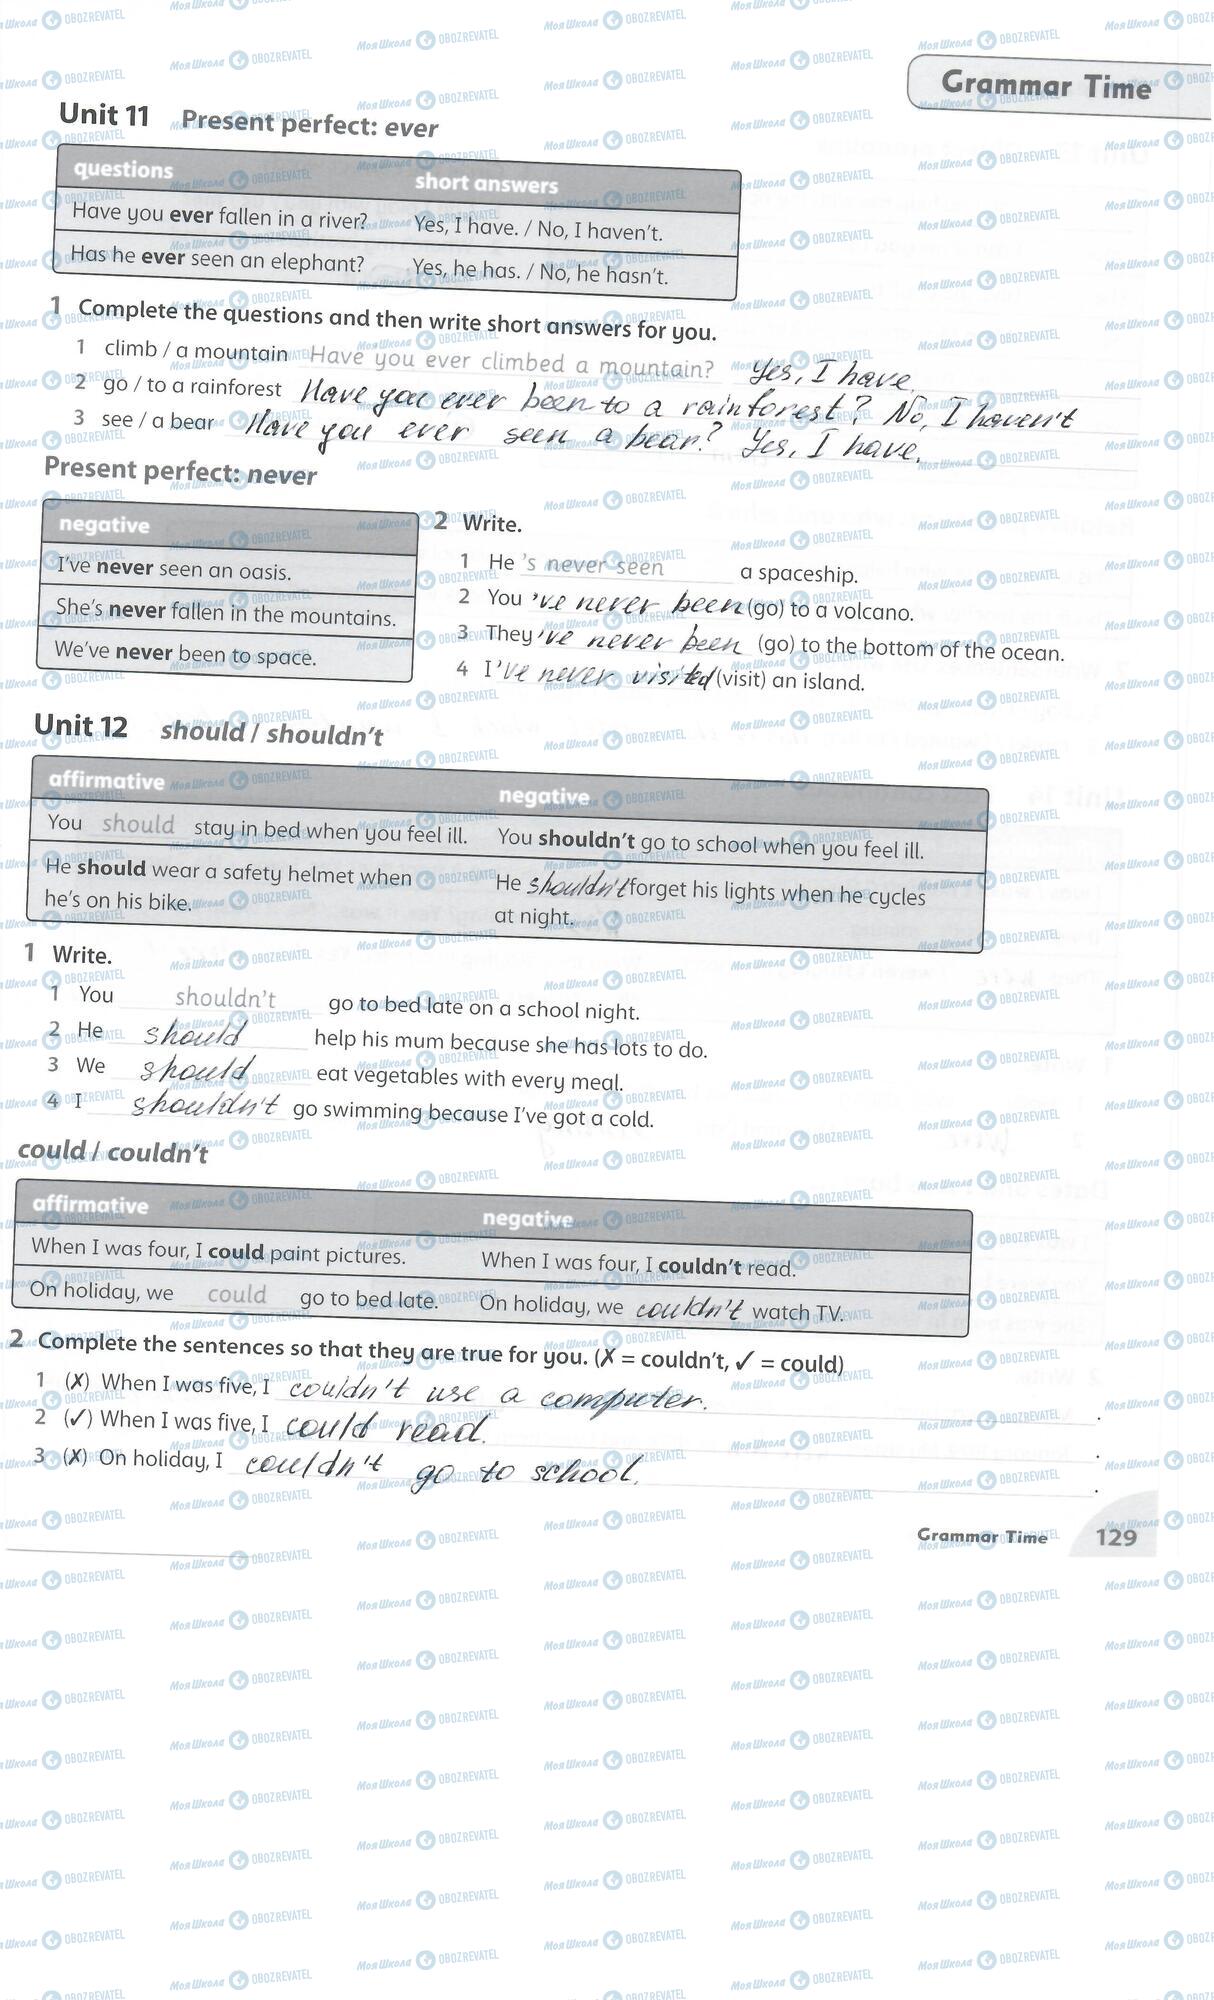 Grammar Time
Unit 11 Present perfect: ever
questions short answers
Have you ever fallen in a river? Yes, I have. / No, I haven't.
Has he ever seen an elephant? Yes, he has. / No, he hasn't.
1 Complete the questions and then write short answers for you.
1 climb / a mountain Have you ever climbed a mountain? Yes, I have.
2 go / to a rainforest Have you ever been to a rainforest? No, I haven't
3 see / a bear Have you ever seen a bear? Yes, I have.
Present perfect: never
negative
I've never seen an oasis.
She's never fallen in the mountains.
We've never been to space.
2 Write.
1 He 's never seen a spaceship.
2 You 've never been (go) to a volcano.
3 They 've never been (go) to the bottom of the ocean.
4 I 've never visited (visit) an island.
Unit 12 should / shouldn't
affirmative negative
You should stay in bed when you feel ill. You shouldn't go to school when you feel ill.
He should wear a safety helmet when he's on his bike. He shouldn't forget his lights when he cycles at night.
1 Write.
1 You shouldn't go to bed late on a school night.
2 He should help his mum because she has lots to do.
3 We should eat vegetables with every meal.
4 I shouldn't go swimming because I've got a cold.
could / couldn't
affirmative negative
When I was four, I could paint pictures. When I was four, I couldn't read.
On holiday, we could go to bed late. On holiday, we couldn't watch TV.
2 Complete the sentences so that they are true for you. (✗ = couldn't, ✓ = could)
1 (✗) When I was five, I couldn't use a computer. .
2 (✓) When I was five, I could read. .
3 (✗) On holiday, I couldn't go to school. .
Grammar Time 129
Моя Школа OBOZREVATEL